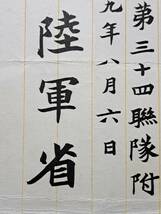 第三十四聯隊附
九年八月六日
陸軍省